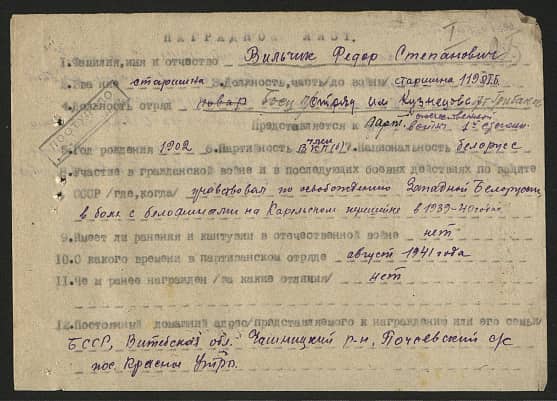 НАГРАДНОЙ ЛИСТ.
1. Фамилия, имя и отчество Вильчик Федор Степанович
2. Звание старшина 3. Должность, часть /до войны старшина 119
4. Должность отряд повар боец отряд им Кузнецова
Представляется к Отечественной войны 1й степени
5. Год рождения 1902 6. Партийность член ВКП(б) 7. Национальность белорус
8. Участие в гражданской войне и в последующих боевых действиях по защите
СССР /где, когда/ учавствовал по освобождению Западной Белоруссии,
в боях с белофинами на Карельском перешейке в 1939-40 годах
9. Имеет ли ранения и контузии в отечественной войне нет
10. О какого времени в партизанском отряде август 1941 года
11. Чем ранее награжден /за какие отличия/ нет
12. Постоянный домашний адрес /представляемого к награждению или его семьи/
БССР, Витебская обл. Чашницкий р-н, Почаевский с/с
пос. Красны Утро.